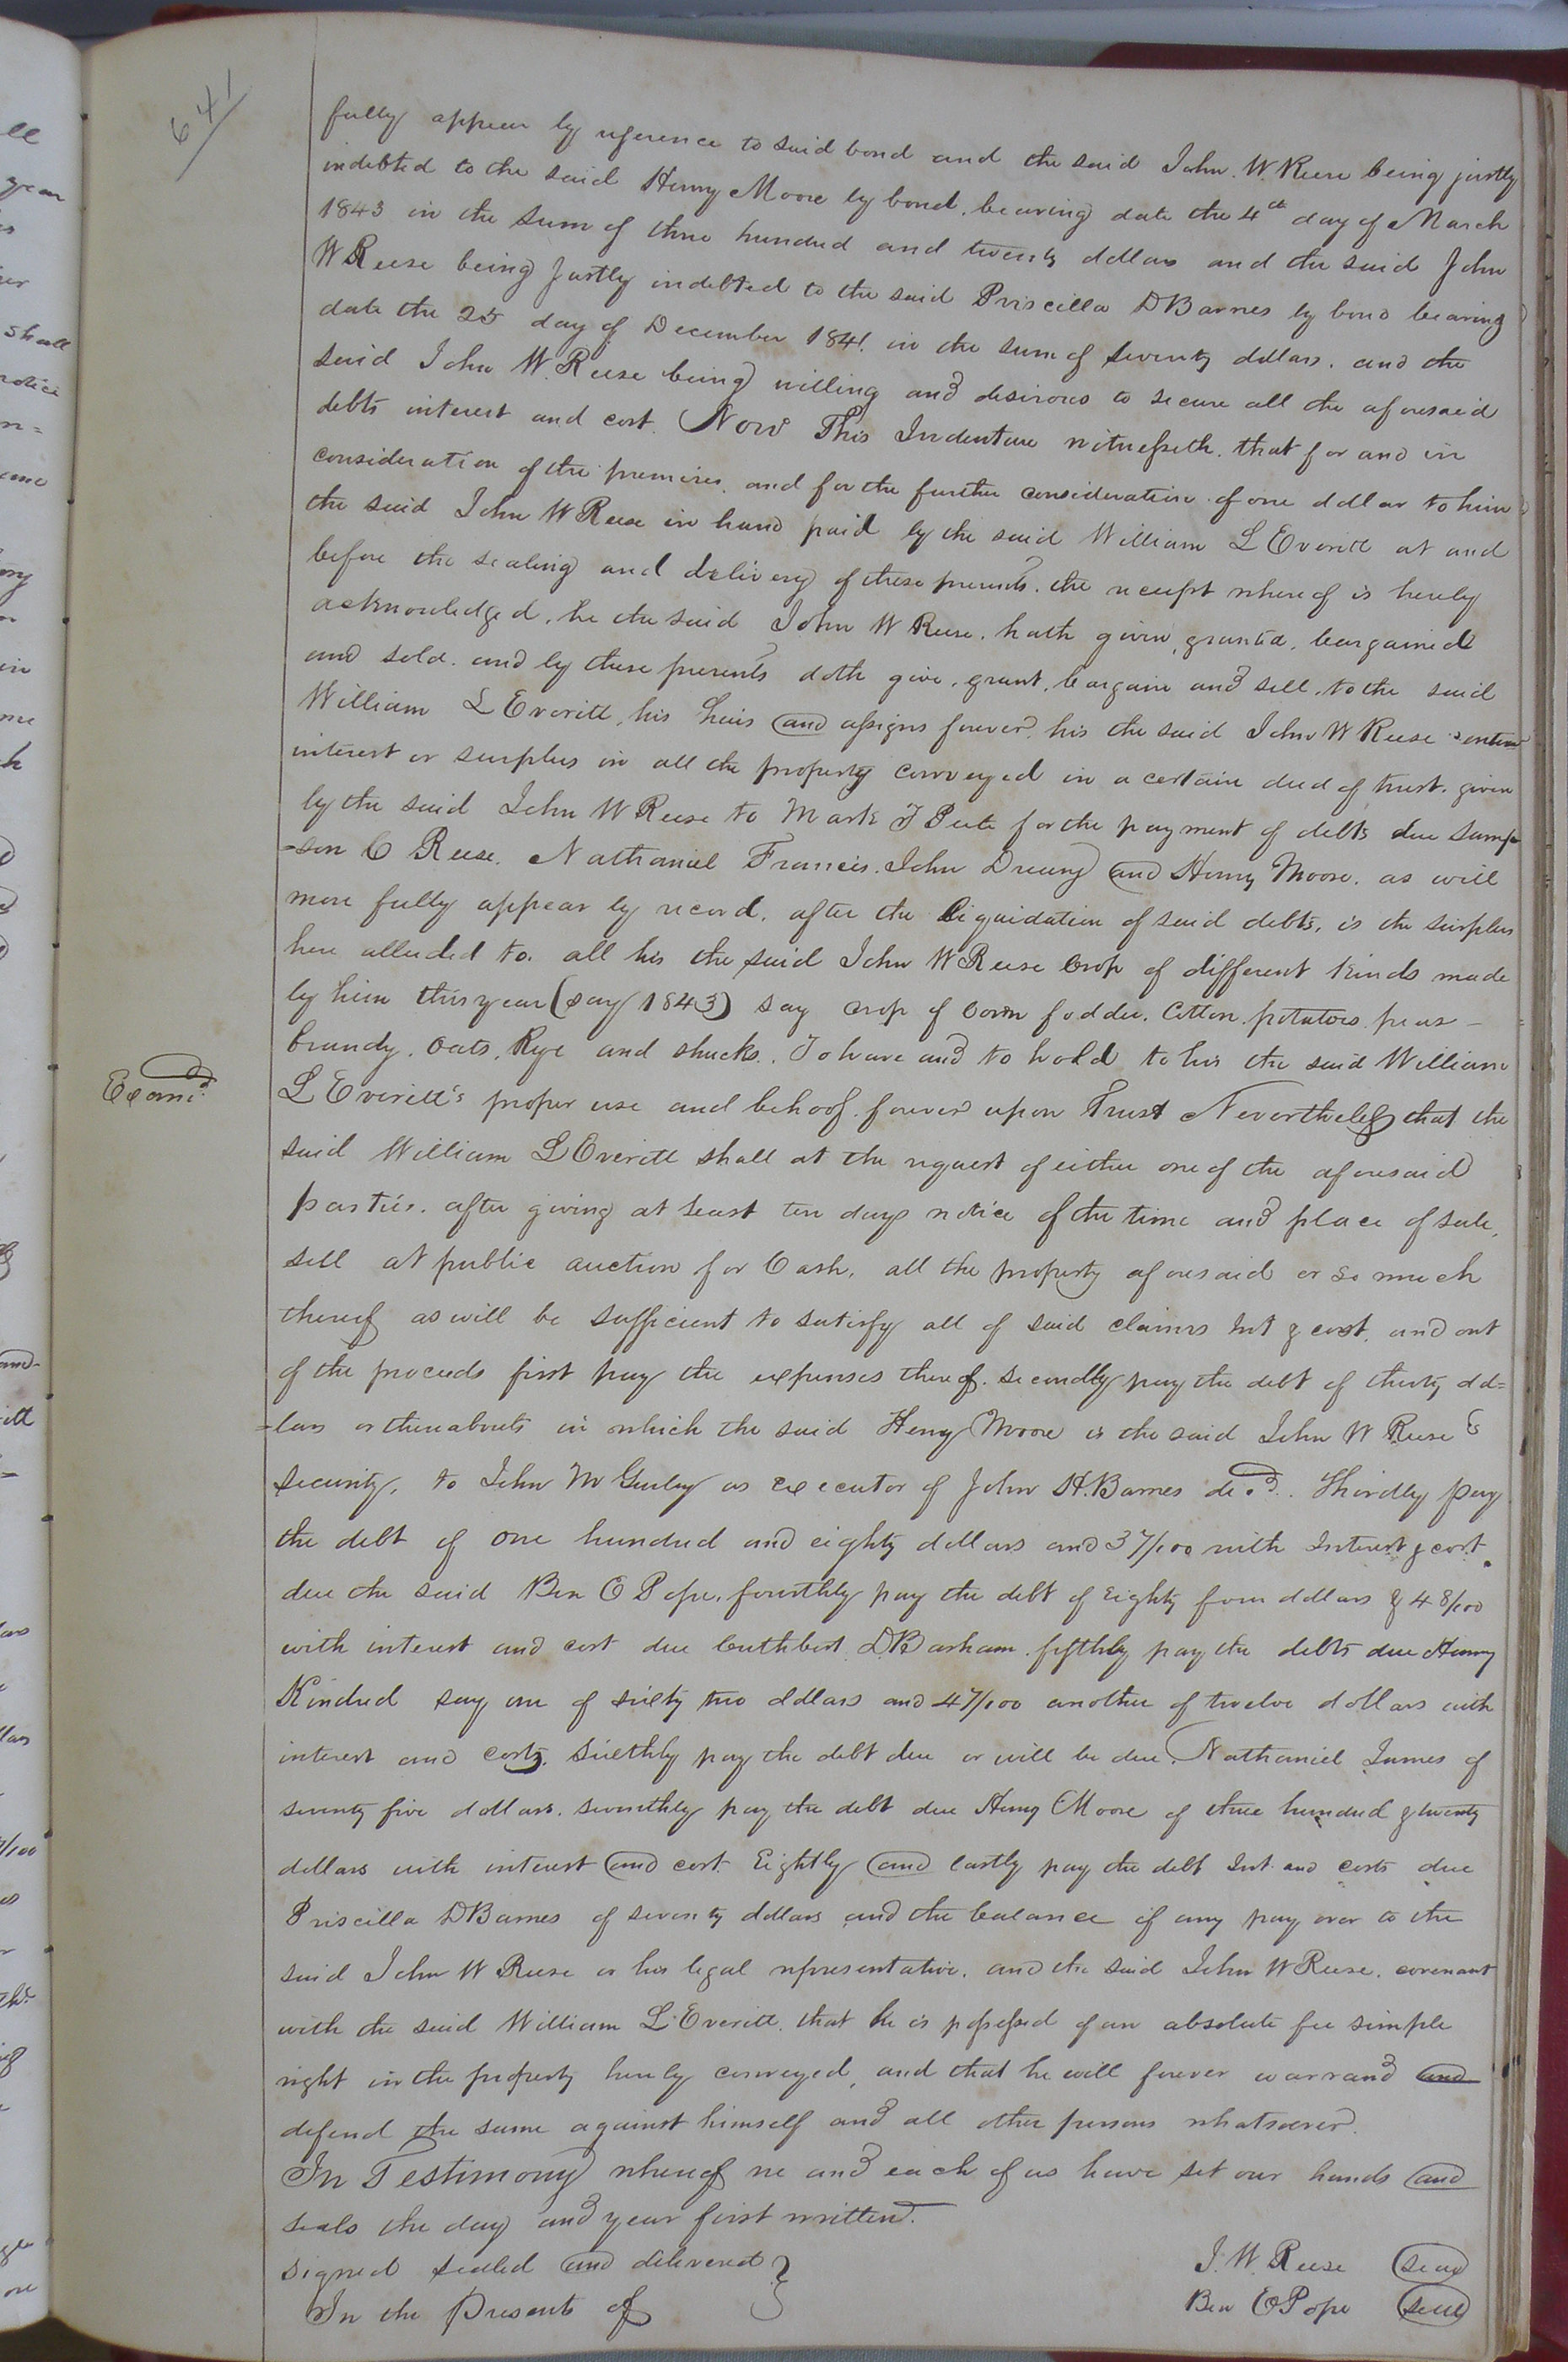 641
fully appear by reference to said bond and the said John. W. Reese being justly
indebted to the said Henry Moore by bond. bearing date the 4th day of March
1843 in the sum of three hundred and twenty dollars and the said John
W Reese being Justly indebted to the said Priscilla D Barnes by bond bearing
date the 25 day of December 1841. in the sum of seventy dollars. and the
said John W. Reese being willing and desirous to secure all the aforesaid
debts interest and cost. Now This Indenture witnesseth. that for and in
consideration of the premises. and for the further consideration of one dollar to him
the said John W Reese in hand paid by the said William L Everitt at and
before the sealing and delivery of these presents. the receipt whereof is hereby
acknowledged. he the said John W Reese. hath given, granted. bargained
and sold. and by these presents doth give. grant. bargain and sell. to the said
William L Everitt, his heirs and assigns forever. his the said John W Reese's entire
interest or surplus in all the property conveyed in a certain deed of trust. given
by the said John W Reese to Mark T Pete for the payment of debts due Samp
-son C Reese. Nathaniel Francis. John Drewry and Henry Moore. as will
more fully appear by record. after the liquidation of said debts, is the surplus
here alluded to. all his the said John W Reese Crop of different kinds made
by him this year (say 1843) say crop of Corn fodder. Cotton. potatoes. peas -
brandy. Oats, Rye and shucks. To have and to hold to his the said William
Exam.d
L Everitt's proper use and behoof. forever upon Trust Nevertheless that the
said William L Everitt shall at the request of either one of the aforesaid
parties. after giving at least ten days notice of the time and place of sale,
sell at public auction for Cash, all the property aforesaid or so much
thereof as will be sufficient to satisfy all of said claims Int & cost. and out
of the proceeds first pay the expenses thereof. secondly pay the debt of thirty dol=
=lars or thereabouts in which the said Henry Moore is the said John W Reese's
security, to John M Gurley as executor of John H. Barnes dec.d. Thirdly pay
the debt of one hundred and eighty dollars and 37/100 with Interest & cost.
due the said Ben E Pope. fourthly pay the debt of Eighty four dollars & 48/100
with interest and cost due Cuthbert D Barham. fifthly pay the debts due Henry
Kindred say one of sixty two dollars and 47/100 another of twelve dollars with
interest and costs. Sixthly pay the debt due or will be due. Nathaniel James of
seventy five dollars. seventhly pay the debt due Henry Moore of three hundred & twenty
dollars with interest and cost Eightly and lastly pay the debt Int. and costs due
Priscilla D Barnes of seventy dollars and the balance if any pay over to the
said John W Reese or his legal representative. and the said John W Reese. covenant
with the said William L. Everitt. that he is possessed of an absolute fee simple
right in the property hereby conveyed, and that he will forever warrand and
defend the same against himself and all other persons whatsoever.
In Testimony whereof we and each of us have set our hands and
seals the day and year first written.
signed sealed and delivered } J. W. Reese seal
In the Presents of } Ben E Pope seal